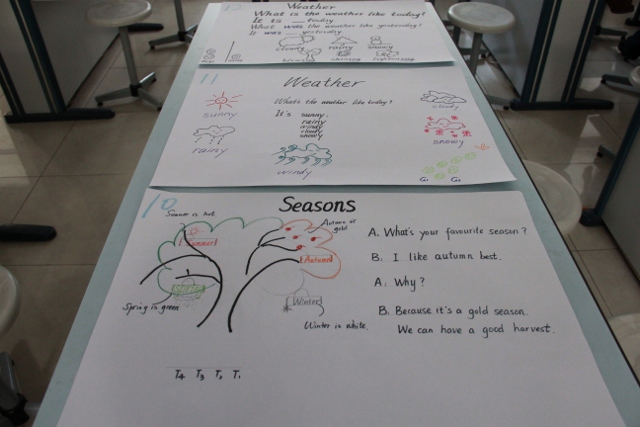 12
Weather
What is the weather like today?
It is ___ today
What was the weather like yesterday?
It was ___ yesterday
cloudy
rainy
snowy
11
Weather
What's the weather like today?
It's sunny.
rainy
windy
cloudy
snowy
sunny
rainy
windy
cloudy
snowy
G1 G2
10
Seasons
Summer is hot.
Autumn is gold
Summer
Autumn
Spring
Winter
Spring is green
Winter is white.
A. What's your favourite season?
B. I like autumn best.
A. Why?
B. Because it's a gold season.
We can have a good harvest.
T4 T3 T2 T1